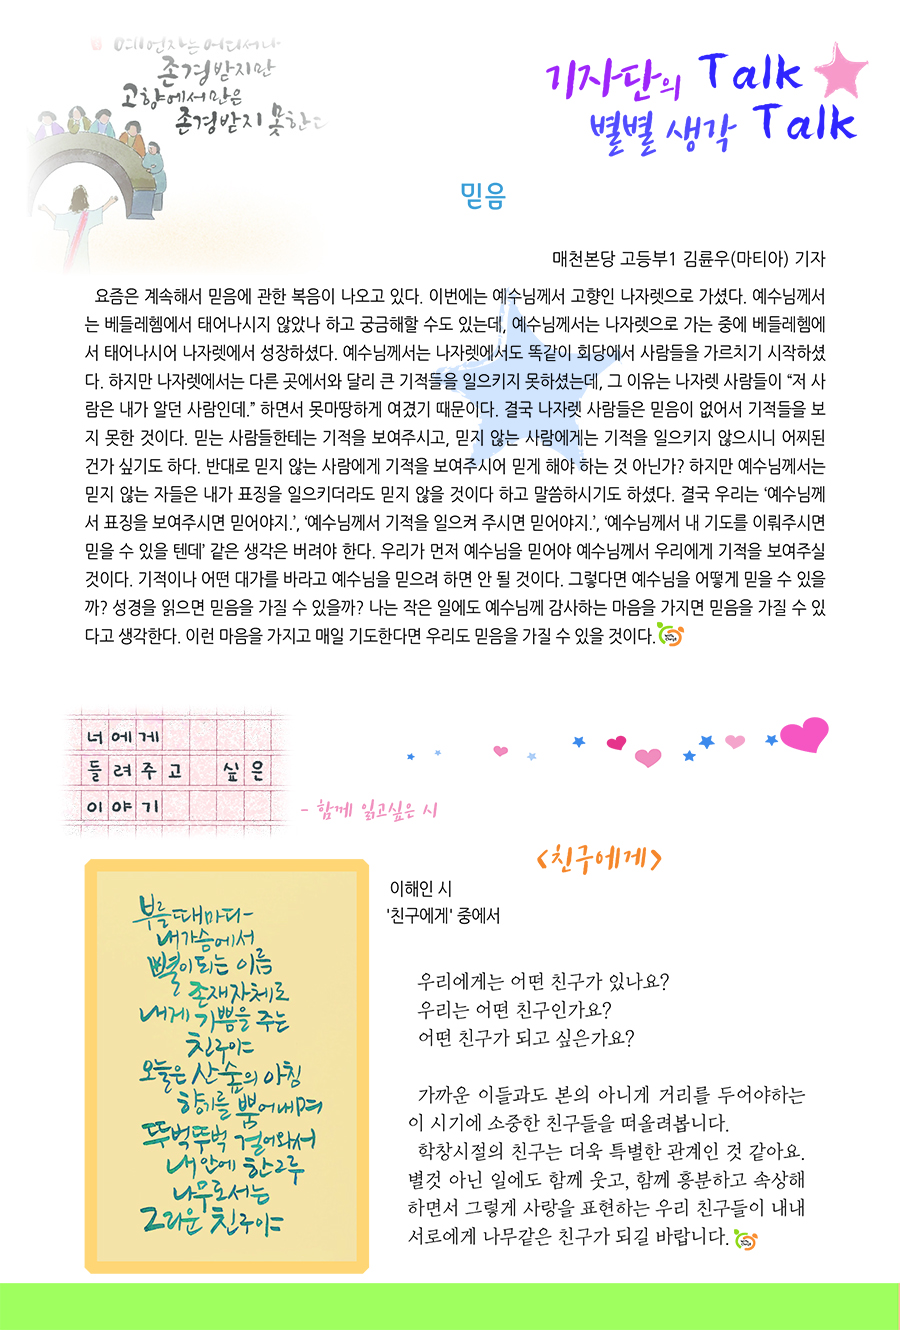 예언자는 어디서나
존경받지만
고향에서만은
존경받지 못한다
기자단의 Talk
별별 생각 Talk
믿음
매천본당 고등부1 김륜우(마티아) 기자
요즘은 계속해서 믿음에 관한 복음이 나오고 있다. 이번에는 예수님께서 고향인 나자렛으로 가셨다. 예수님께서
는 베들레헴에서 태어나시지 않았나 하고 궁금해할 수도 있는데, 예수님께서는 나자렛으로 가는 중에 베들레헴에
서 태어나시어 나자렛에서 성장하셨다. 예수님께서는 나자렛에서도 똑같이 회당에서 사람들을 가르치기 시작하셨
다. 하지만 나자렛에서는 다른 곳에서와 달리 큰 기적들을 일으키지 못하셨는데, 그 이유는 나자렛 사람들이 “저 사
람은 내가 알던 사람인데.” 하면서 못마땅하게 여겼기 때문이다. 결국 나자렛 사람들은 믿음이 없어서 기적들을 보
지 못한 것이다. 믿는 사람들한테는 기적을 보여주시고, 믿지 않는 사람에게는 기적을 일으키지 않으시니 어찌된
건가 싶기도 하다. 반대로 믿지 않는 사람에게 기적을 보여주시어 믿게 해야 하는 것 아닌가? 하지만 예수님께서는
믿지 않는 자들은 내가 표징을 일으키더라도 믿지 않을 것이다 하고 말씀하시기도 하셨다. 결국 우리는 ‘예수님께
서 표징을 보여주시면 믿어야지.’, ‘예수님께서 기적을 일으켜 주시면 믿어야지.’, ‘예수님께서 내 기도를 이뤄주시면
믿을 수 있을 텐데’ 같은 생각은 버려야 한다. 우리가 먼저 예수님을 믿어야 예수님께서 우리에게 기적을 보여주실
것이다. 기적이나 어떤 대가를 바라고 예수님을 믿으려 하면 안 될 것이다. 그렇다면 예수님을 어떻게 믿을 수 있을
까? 성경을 읽으면 믿음을 가질 수 있을까? 나는 작은 일에도 예수님께 감사하는 마음을 가지면 믿음을 가질 수 있
다고 생각한다. 이런 마음을 가지고 매일 기도한다면 우리도 믿음을 가질 수 있을 것이다.
너에게
들려주고 싶은
이야기
- 함께 읽고싶은 시
<친구에게>
이해인 시
'친구에게' 중에서
부를때마다
내가슴에서
별이되는 이름
존재자체로
내게 기쁨을 주는
친구야
오늘은 산숲의 아침
향기를 뿜어내며
뚜벅뚜벅 걸어와서
내안에 한그루
나무로서는
그리운 친구야
우리에게는 어떤 친구가 있나요?
우리는 어떤 친구인가요?
어떤 친구가 되고 싶은가요?
가까운 이들과도 본의 아니게 거리를 두어야하는
이 시기에 소중한 친구들을 떠올려봅니다.
학창시절의 친구는 더욱 특별한 관계인 것 같아요.
별것 아닌 일에도 함께 웃고, 함께 흥분하고 속상해
하면서 그렇게 사랑을 표현하는 우리 친구들이 내내
서로에게 나무같은 친구가 되길 바랍니다.